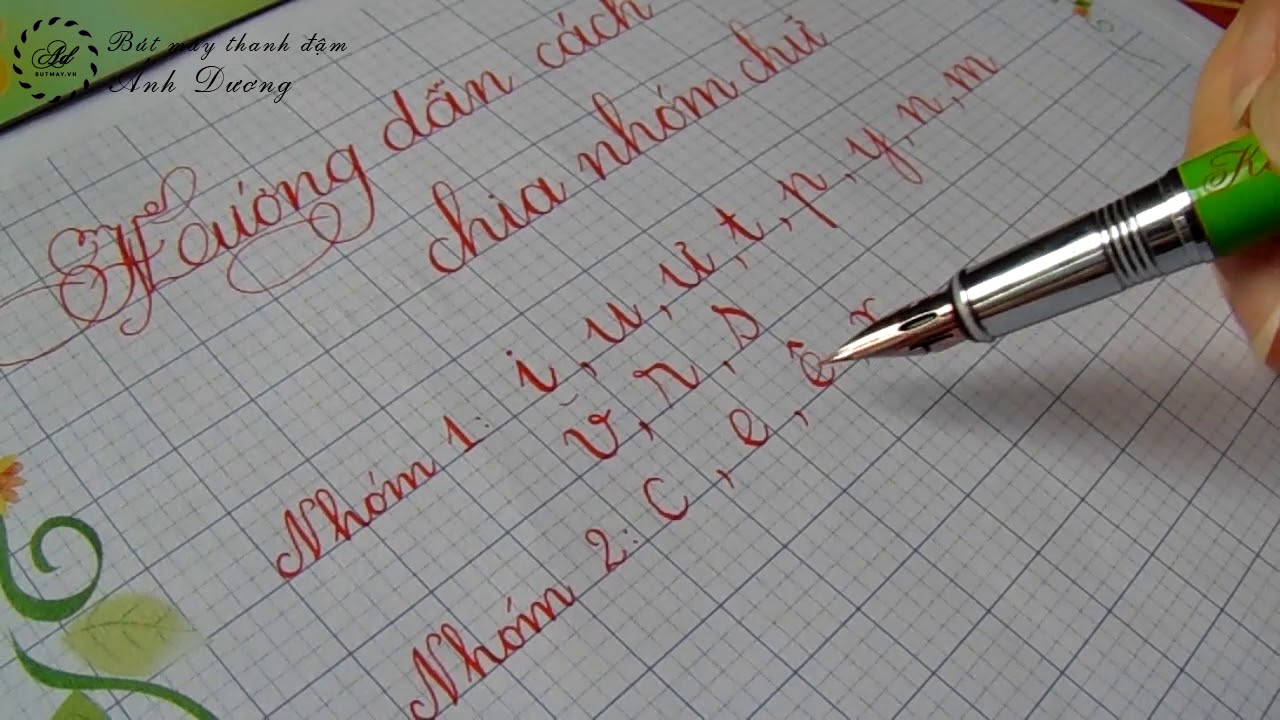 Bút máy thanh đậm
Ánh Dương
Ad
BUTMAY.VN
Hướng dẫn cách
chia nhóm chữ
Nhóm 1: i, u, ư, t, p, y, n, m
v, r, s
Nhóm 2: c, e, ê, x